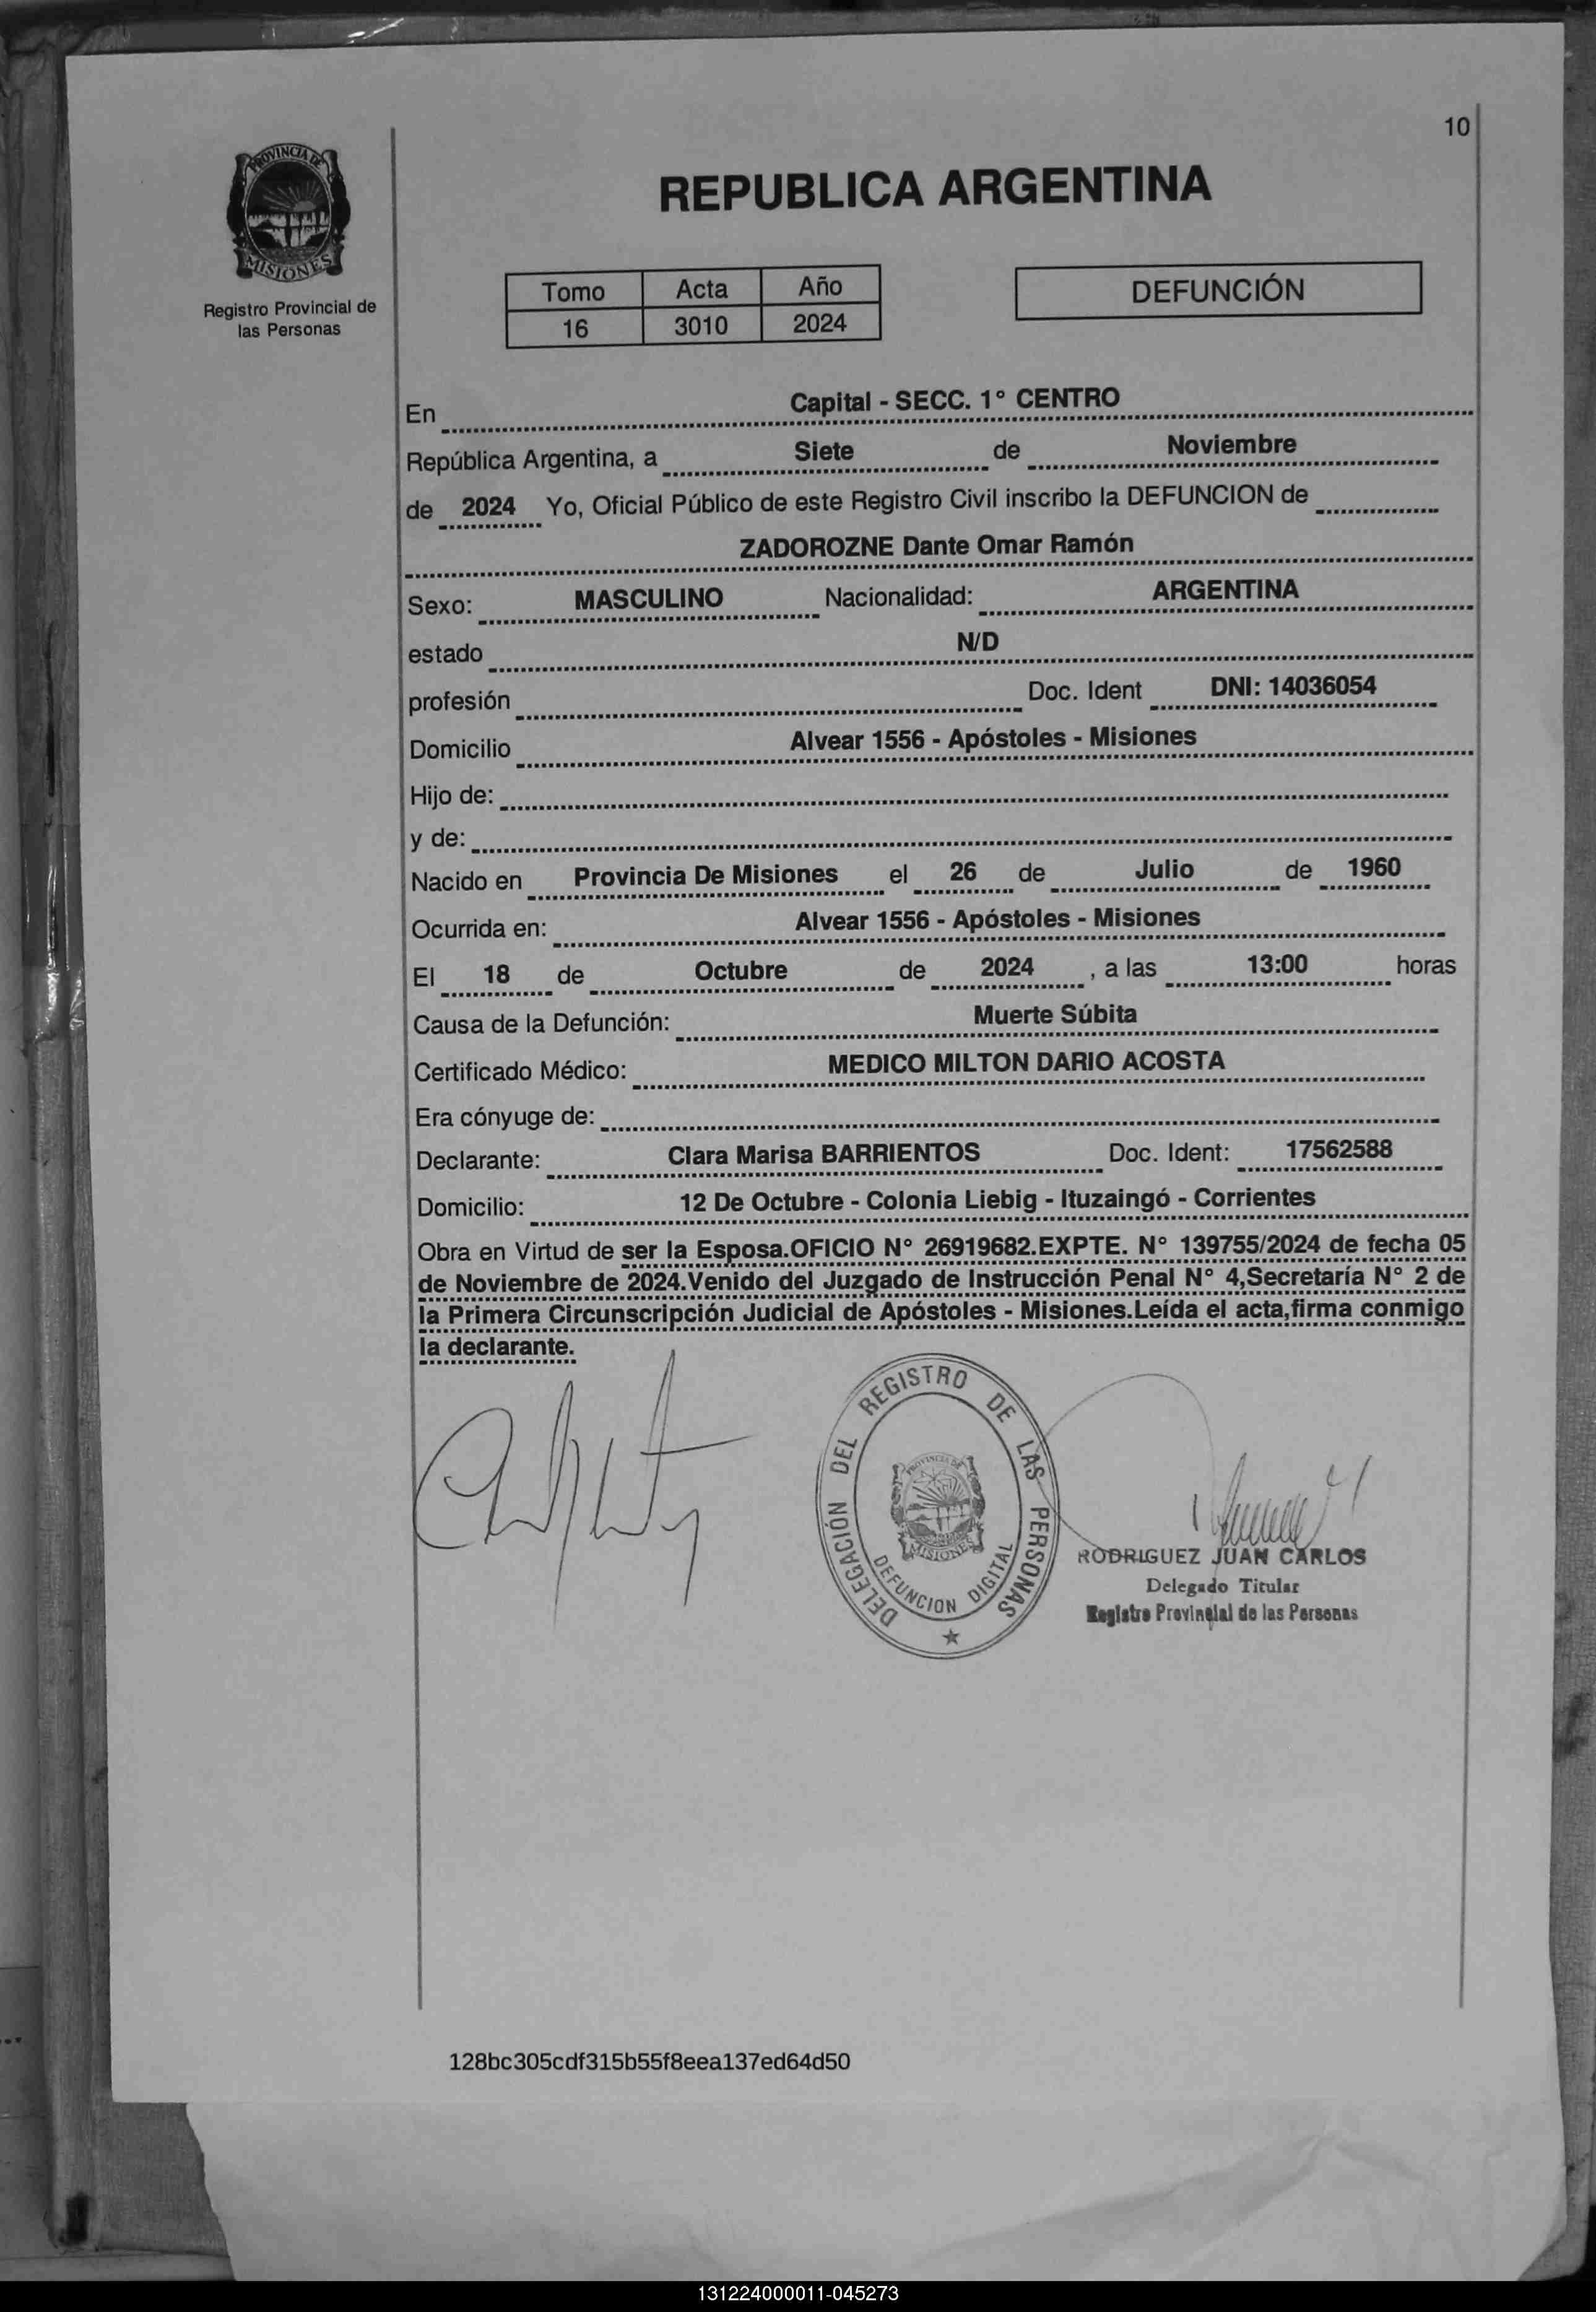 10
PROVINCIA DE
MISIONES
Registro Provincial de
las Personas
REPUBLICA ARGENTINA
Tomo Acta Año
16 3010 2024
DEFUNCIÓN
En Capital - SECC. 1° CENTRO
República Argentina, a Siete de Noviembre
de 2024 Yo, Oficial Público de este Registro Civil inscribo la DEFUNCION de
ZADOROZNE Dante Omar Ramón
Sexo: MASCULINO Nacionalidad: ARGENTINA
estado N/D
profesión Doc. Ident DNI: 14036054
Domicilio Alvear 1556 - Apóstoles - Misiones
Hijo de:
y de:
Nacido en Provincia De Misiones el 26 de Julio de 1960
Ocurrida en: Alvear 1556 - Apóstoles - Misiones
El 18 de Octubre de 2024 , a las 13:00 horas
Causa de la Defunción: Muerte Súbita
Certificado Médico: MEDICO MILTON DARIO ACOSTA
Era cónyuge de:
Declarante: Clara Marisa BARRIENTOS Doc. Ident: 17562588
Domicilio: 12 De Octubre - Colonia Liebig - Ituzaingó - Corrientes
Obra en Virtud de ser la Esposa.OFICIO N° 26919682.EXPTE. N° 139755/2024 de fecha 05
de Noviembre de 2024.Venido del Juzgado de Instrucción Penal N° 4,Secretaría N° 2 de
la Primera Circunscripción Judicial de Apóstoles - Misiones.Leída el acta,firma conmigo
la declarante.
DELEGACIÓN DEL REGISTRO DE LAS PERSONAS
PROVINCIA DE
MISIONES
DEFUNCION DIGITAL
RODRIGUEZ JUAN CARLOS
Delegado Titular
Registro Provincial de las Personas
128bc305cdf315b55f8eea137ed64d50
131224000011-045273